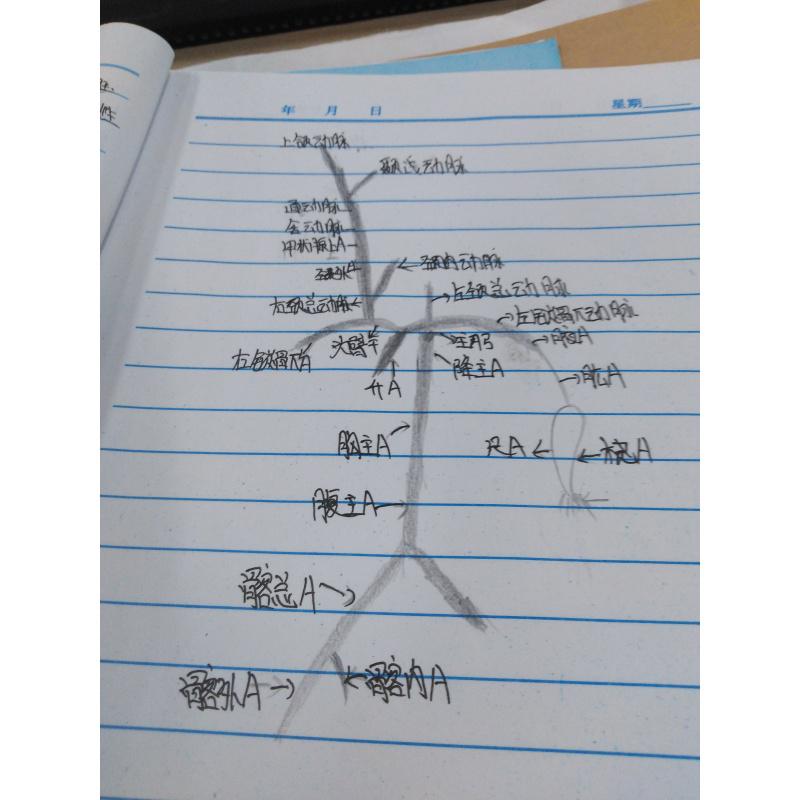 年 月 日
星期
上颌动脉
颞浅动脉
面动脉
舌动脉
甲状腺上A
颈外A
颈内动脉
右颈总动脉
左颈总动脉
左锁骨下动脉
右锁骨下A
头臂干
主A弓
腋A
降主A
升A
肱A
胸主A
尺A
桡A
腹主A
髂总A
髂外A
髂内A